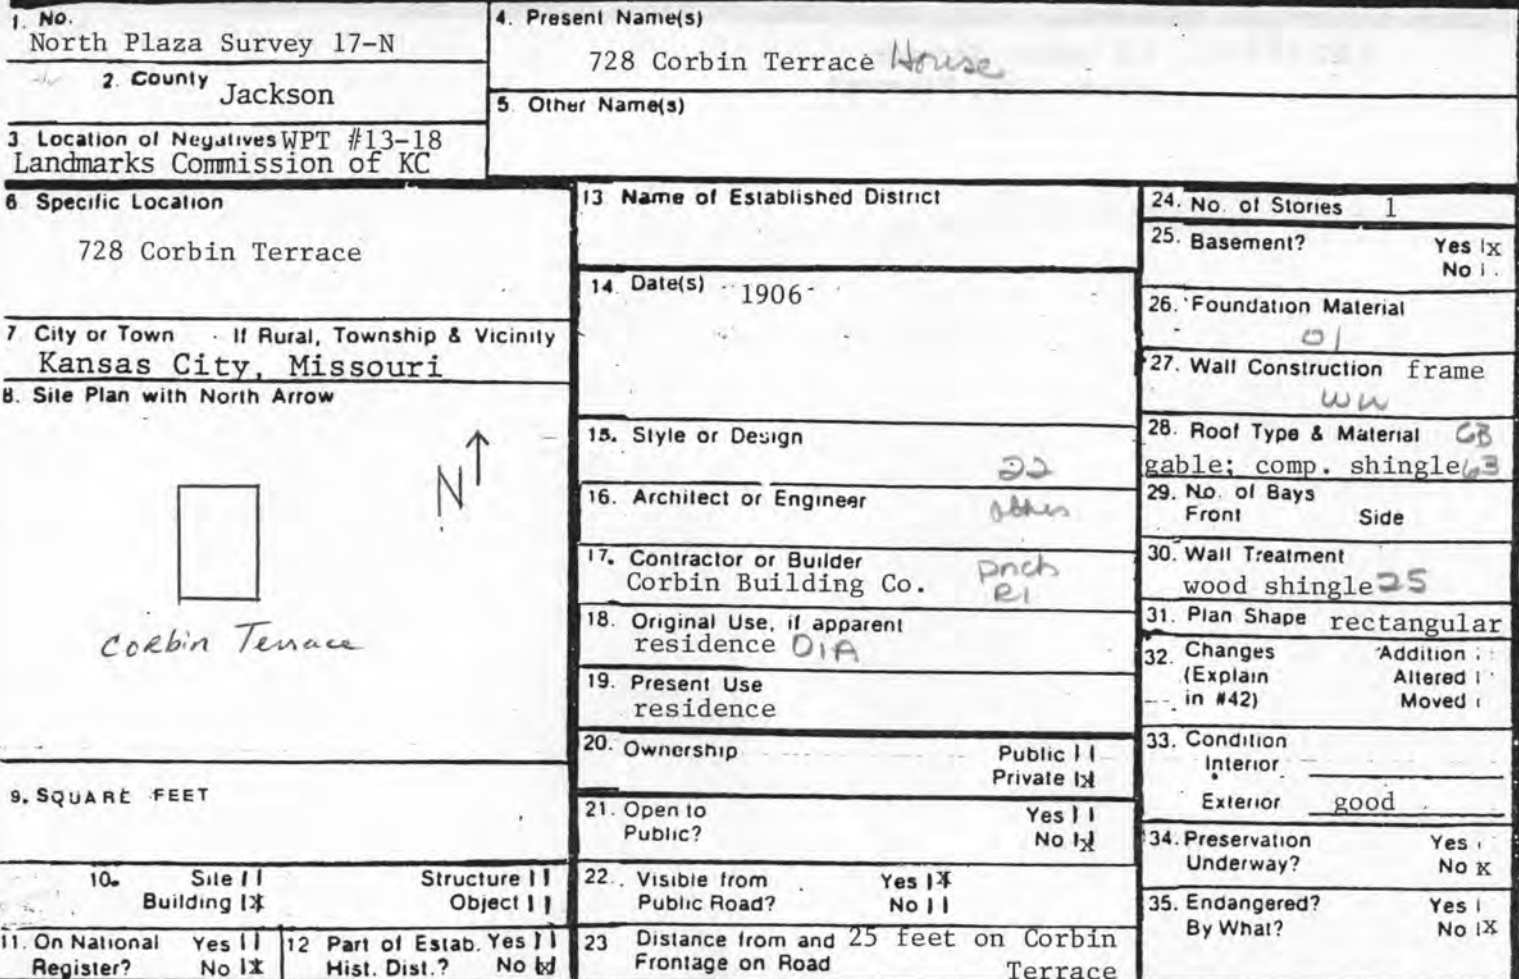 1. No.
North Plaza Survey 17-N
2. County Jackson
3 Location of Negatives WPT #13-18
Landmarks Commission of KC
4. Present Name(s)
728 Corbin Terrace House
5. Other Name(s)
6 Specific Location
728 Corbin Terrace
7 City or Town If Rural, Township & Vicinity
Kansas City, Missouri
8. Site Plan with North Arrow
N
Corbin Terrace
9. SQUARE FEET
10. Site
Structure
Building X
Object
11. On National Register? Yes
No X
12 Part of Estab. Hist. Dist.? Yes
No X
13 Name of Established District
14. Date(s) 1906
15. Style or Design
22
16. Architect or Engineer
17. Contractor or Builder
Corbin Building Co.
R1
18. Original Use, if apparent
residence 01A
19. Present Use
residence
20. Ownership Public
Private X
21. Open to Public? Yes
No X
22. Visible from Public Road? Yes X
No
23 Distance from and Frontage on Road 25 feet on Corbin
Terrace
24. No. of Stories 1
25. Basement? Yes X
No
26. Foundation Material
01
27. Wall Construction frame
WW
28. Roof Type & Material GB
gable; comp. shingle 63
29. No. of Bays
Front Side
30. Wall Treatment
wood shingle 25
31. Plan Shape rectangular
32. Changes Addition
(Explain Altered
in #42) Moved
33. Condition
Interior
Exterior good
34. Preservation Underway? Yes
No X
35. Endangered? Yes
By What? No X